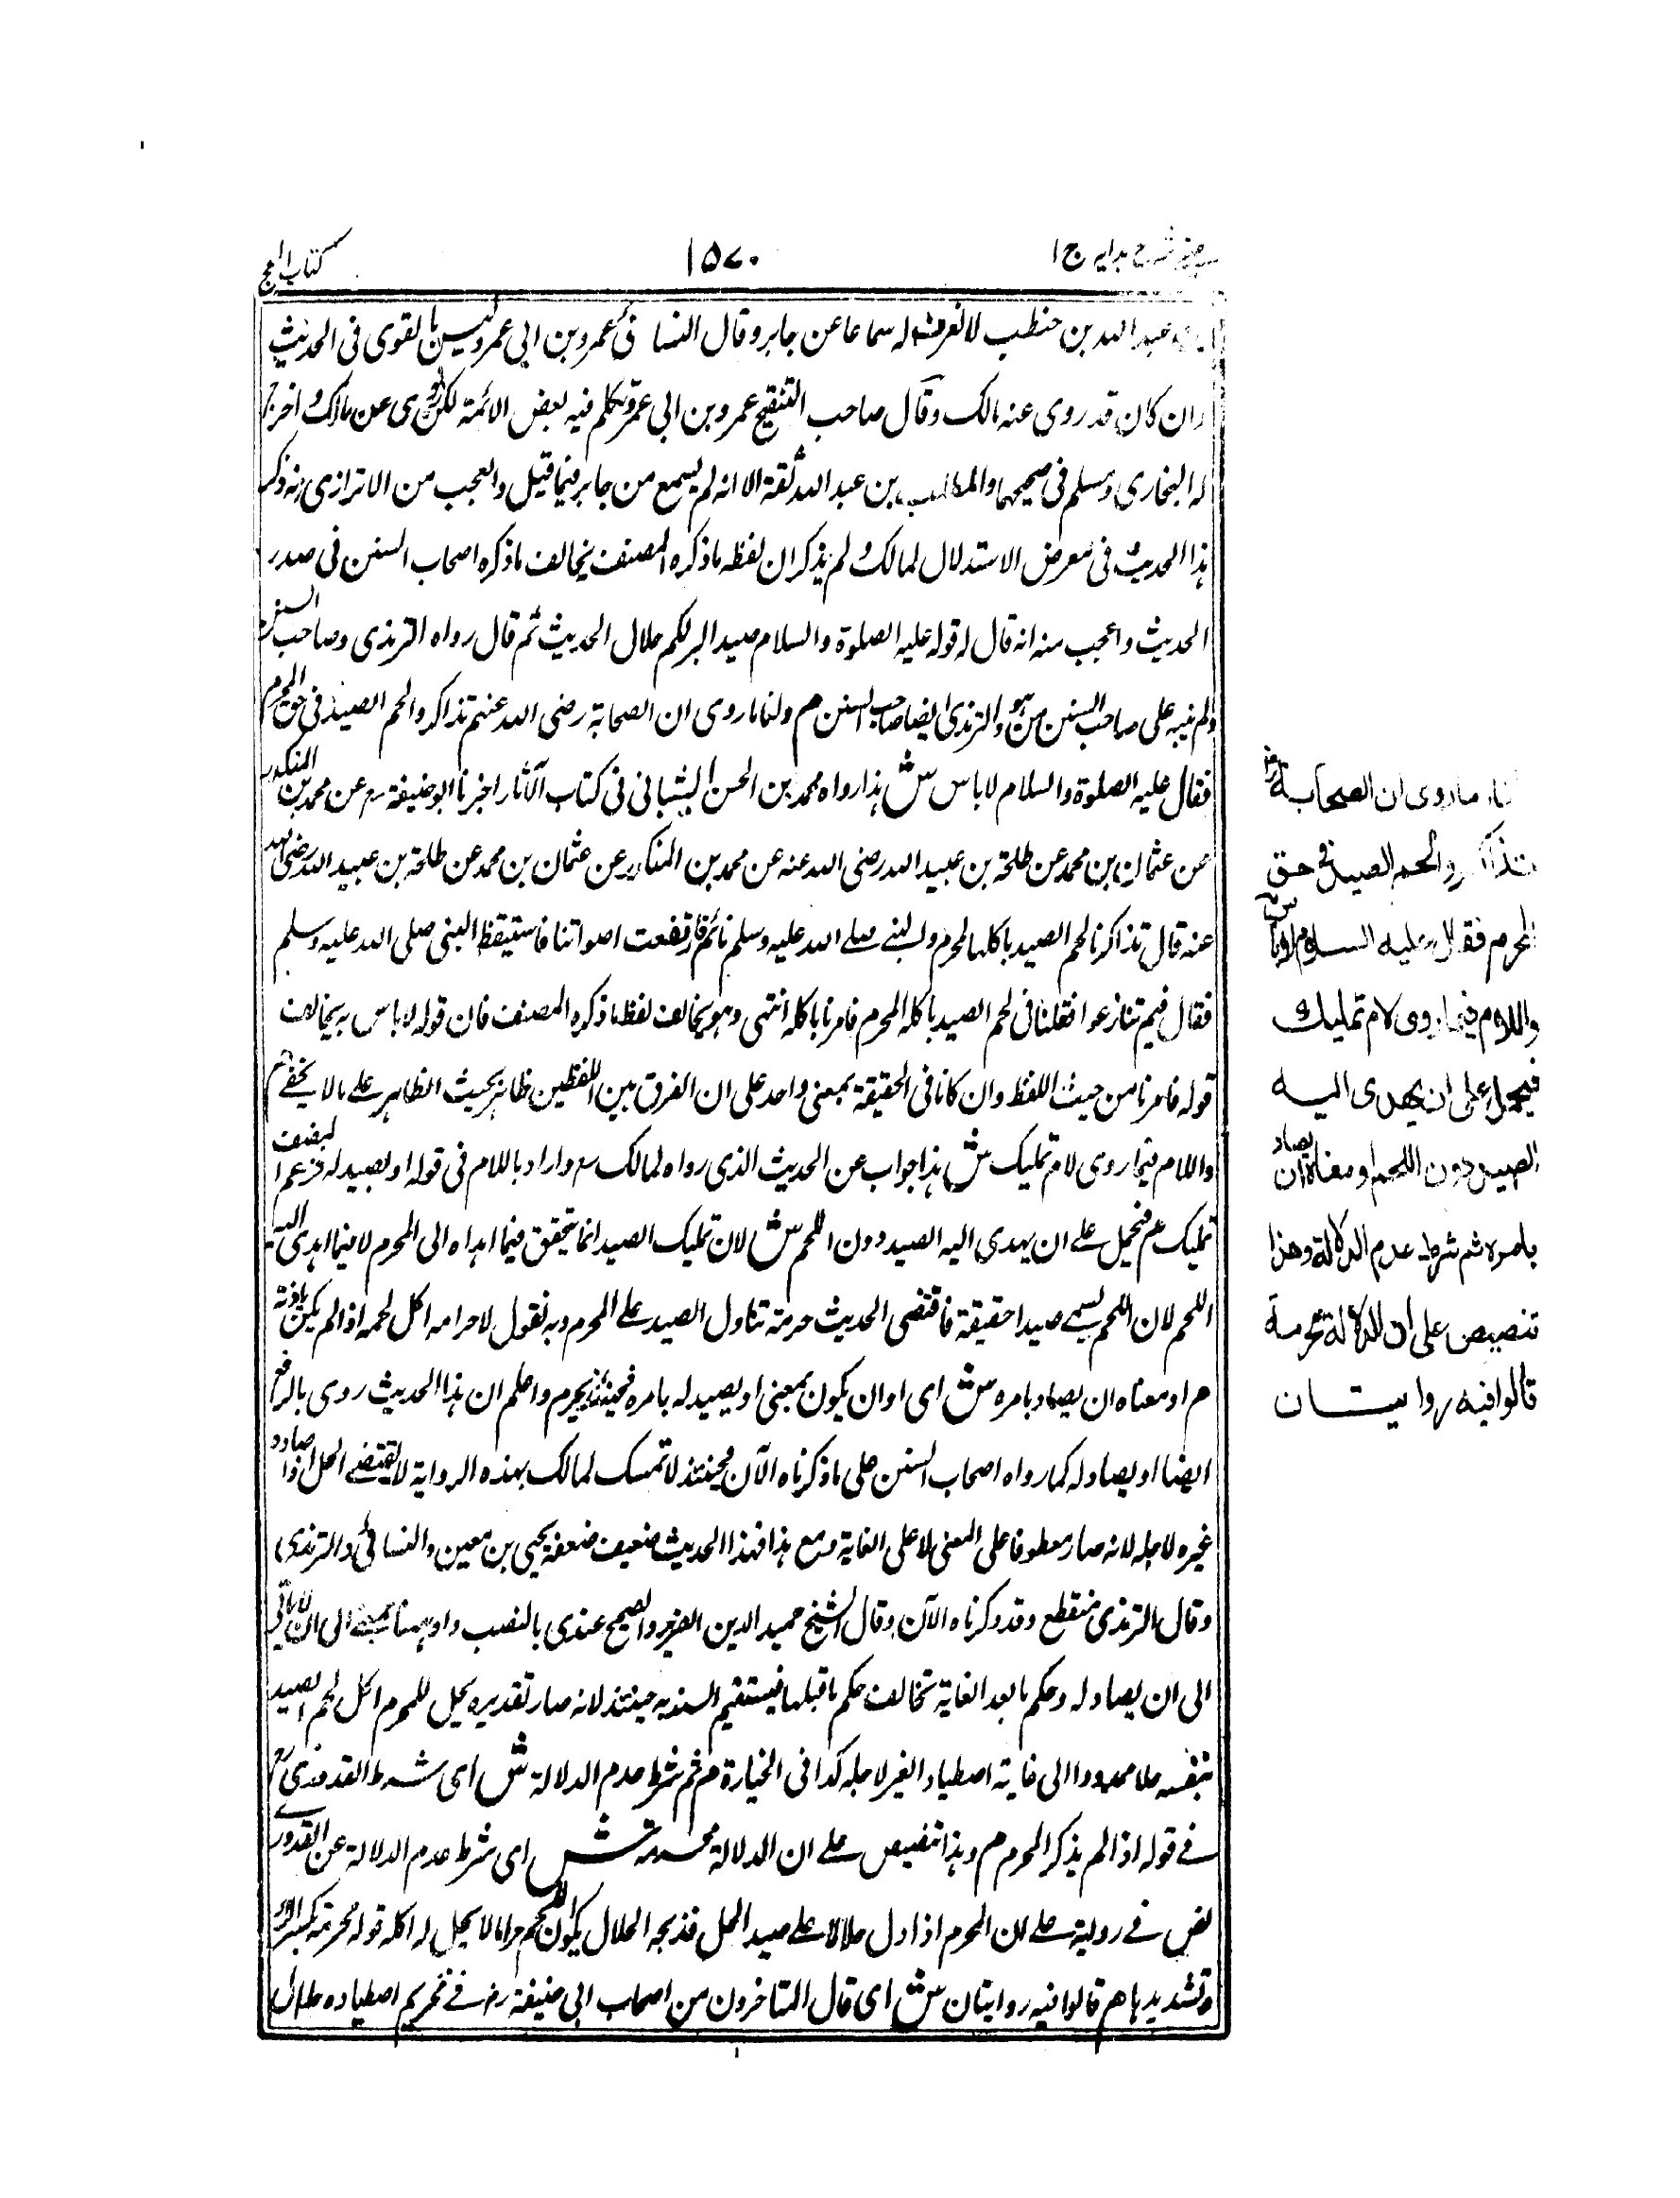 عینی شرح ہدایہ ج۱
۱۵۷۰
کتاب الحج
بن عبد اللہ بن حنطب لا نعرف لہ سماعا عن جابر وقال النسائی عمرو بن ابی عمرو لیس بالقوی فی الحدیث
وان کان قد روی عنہ مالک وقال صاحب التنقیح عمرو بن ابی عمرو تکلم فیہ بعض الائمۃ لکن روی عن مالک واخرج
لہ البخاری ومسلم فی صحیحہما والمطلب بن عبد اللہ ثقۃ الا انہ لم یسمع من جابر فیما قیل والعجب من الاترازی انہ ذکر
ہذا الحدیث فی معرض الاستدلال لمالک ولم یذکر ان لفظہ ما ذکرہ المصنف یخالف ما ذکرہ اصحاب السنن فی صدر
الحدیث واعجب منہ انہ قال لہ قولہ علیہ الصلوۃ والسلام صید البر لکم حلال الحدیث ثم قال رواہ الترمذی وصاحب السنن
ولم نبہ علی صاحب السنن من ہو والترمذی ایضا صاحب السنن م ولنا ما روی ان الصحابۃ رضی اللہ عنہم تذاکروا لحم الصید فی حق المحرم
فقال علیہ الصلوۃ والسلام لا باس ش ہذا رواہ محمد بن الحسن الشیبانی فی کتاب الآثار اخبرنا ابو حنیفۃ عن محمد بن المنکدر
عن عثمان بن محمد عن طلحۃ بن عبید اللہ رضی اللہ عنہ عن محمد بن المنکدر عن عثمان بن محمد عن طلحۃ بن عبید اللہ رضی اللہ
عنہ قال تذاکرنا لحم الصید یاکلہ المحرم والنبی صلی اللہ علیہ وسلم نائم فارتفعت اصواتنا فاستیقظ النبی صلی اللہ علیہ وسلم
فقال فیم تنازعوا فقلنا فی لحم الصید یاکلہ المحرم فامرنا باکلہ انتہی وہو یخالف لفظ ما ذکرہ المصنف فان قولہ لا باس بہ یخالف
قولہ فامرنا من حیث اللفظ وان کانا فی الحقیقۃ بمعنی واحد علی ان الفرق بین اللفظین ظاہر بحیث الظاہر علی ما لا یخفی م
واللام فیما روی لام تملیک ش ہذا جواب عن الحدیث الذی رواہ لمالک واراد باللام فی قولہ او یصید لہ
تملیک م فیحمل علی ان یہدی الیہ الصید دون اللحم ش لان تملیک الصید انما یتحقق فیما اہداہ الی المحرم لا فیما اہدی الیہ
اللحم لان اللحم لا یسمی صیدا حقیقۃ فاقتضی الحدیث حرمۃ تناول الصید علی المحرم وبہ نقول لا حرامہ اکل لحمہ اذا لم یکن باذنہ
م او معناہ ان یصاد بامرہ ش ای او ان یکون بمعنی او یصید لہ بامرہ فحینئذ یحرم واعلم ان ہذا الحدیث روی بالرفع
ایضا او یصاد لہ کما رواہ اصحاب السنن علی ما ذکرناہ الآن فحینئذ لا تمسک لمالک بہذہ الروایۃ لا یقتضی الحل اذا صادہ
غیرہ لاجلہ لانہ صار معطوفا علی المعنی لا علی الغایۃ ومع ہذا فہذا الحدیث ضعیف ضعفہ یحیی بن معین والنسائی والترمذی
وقال الترمذی منقطع وقد ذکرناہ الآن وقال الشیخ حمید الدین الضریر والصحیح عندی بالنصب واو ہہنا بمعنی الی ان
الی ان یصاد لہ وحکم ما بعد الغایۃ یخالف حکم ما قبلہا فیستقیم السند بہ حینئذ لانہ صار تقدیرہ یحل للمحرم اکل لحم الصید
بنفسہ حلا ممدودا الی غایۃ اصطیاد الغیر لاجلہ کذا فی الخبازیۃ م ثم شرط عدم الدلالۃ ش ای شرط القدوری
فی قولہ اذا لم یذکر المحرم م وہذا تنصیص علی ان الدلالۃ محرمۃ ش ای شرط عدم الدلالۃ عن القدوری
نص فی روایۃ علی ان المحرم اذا دل حلالا علی صید الحل فذبحہ الحلال یکون اللحم حراما لا یحل لہ اکلہ قولہ محرمۃ بکسر الراء
وتشدیدہا م قالوا فیہ روایتان ش ای قال المتاخرون من اصحاب ابی حنیفۃ فی تحریم اصطیادہ حلال
ولنا ما روی ان الصحابۃ
تذاکروا لحم الصید فی حق
المحرم فقال علیہ السلام لا باس
واللام فیما روی لام تملیک
فیحمل علی ان یھدی الیہ
الصید دون اللحم او معناہ ان یصاد
بامرہ ثم شرط عدم الدلالۃ وھذا
تنصیص علی ان الدلالۃ محرمۃ
قالوا فیہ روایتان